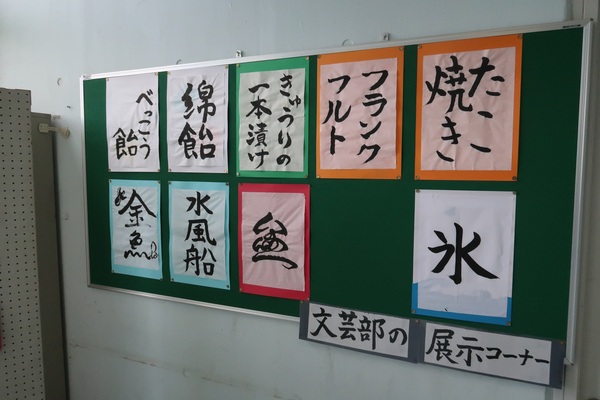 たこ
焼き
フランク
フルト
きゅうりの
一本漬け
綿飴
べっこう
飴
氷
水風船
金魚
文芸部の
展示コーナー